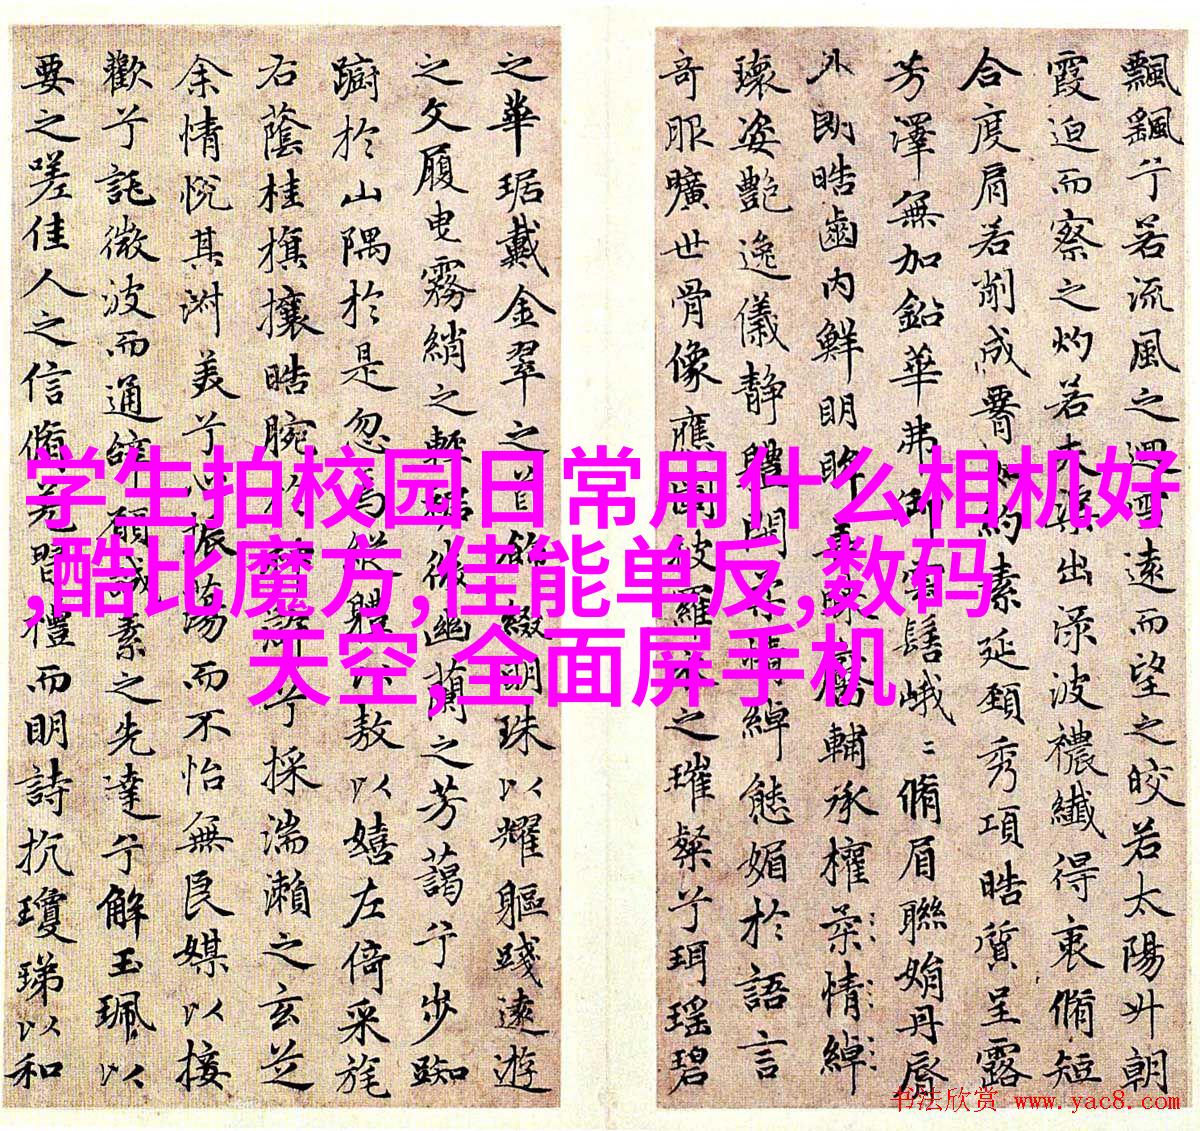 飄飖兮若流風之迴雪遠而望之皎若太陽升朝
霞迫而察之灼若夫渠出渌波禯纖得衷脩短
合度肩若削成約素延頸秀項皓質呈露
芳澤無加鉛華弗御雲髻峨〻脩眉聯娟丹唇
外朗皓齒內鮮明眸善睞靨輔承權柔情綽
瓌姿艷逸儀靜體閑情綽態媚於語言
奇服曠世骨像應圖披羅衣之璀粲兮珥瑤碧
之華琚戴金翠之首飾綴明珠以耀軀踐遠遊
之文履曳霧綃之輕裾微幽蘭之芳藹兮步踟
躕於山隅於是忽焉縱體以敖以嬉左倚采旄
右蔭桂旗攘皓腕於神滸兮採湍瀨之玄芝
余情悅其淑美兮心振蕩而不怡無良媒以接
歡兮託微波而通辭願誠素之先達兮解玉珮以
要之嗟佳人之信脩羌習禮而明詩抗瓊珶以和
学生拍校园日常用什么相机好
,酷比魔方,佳能单反,数码
天空,全面屏手机
书法欣赏 www.yac8.com